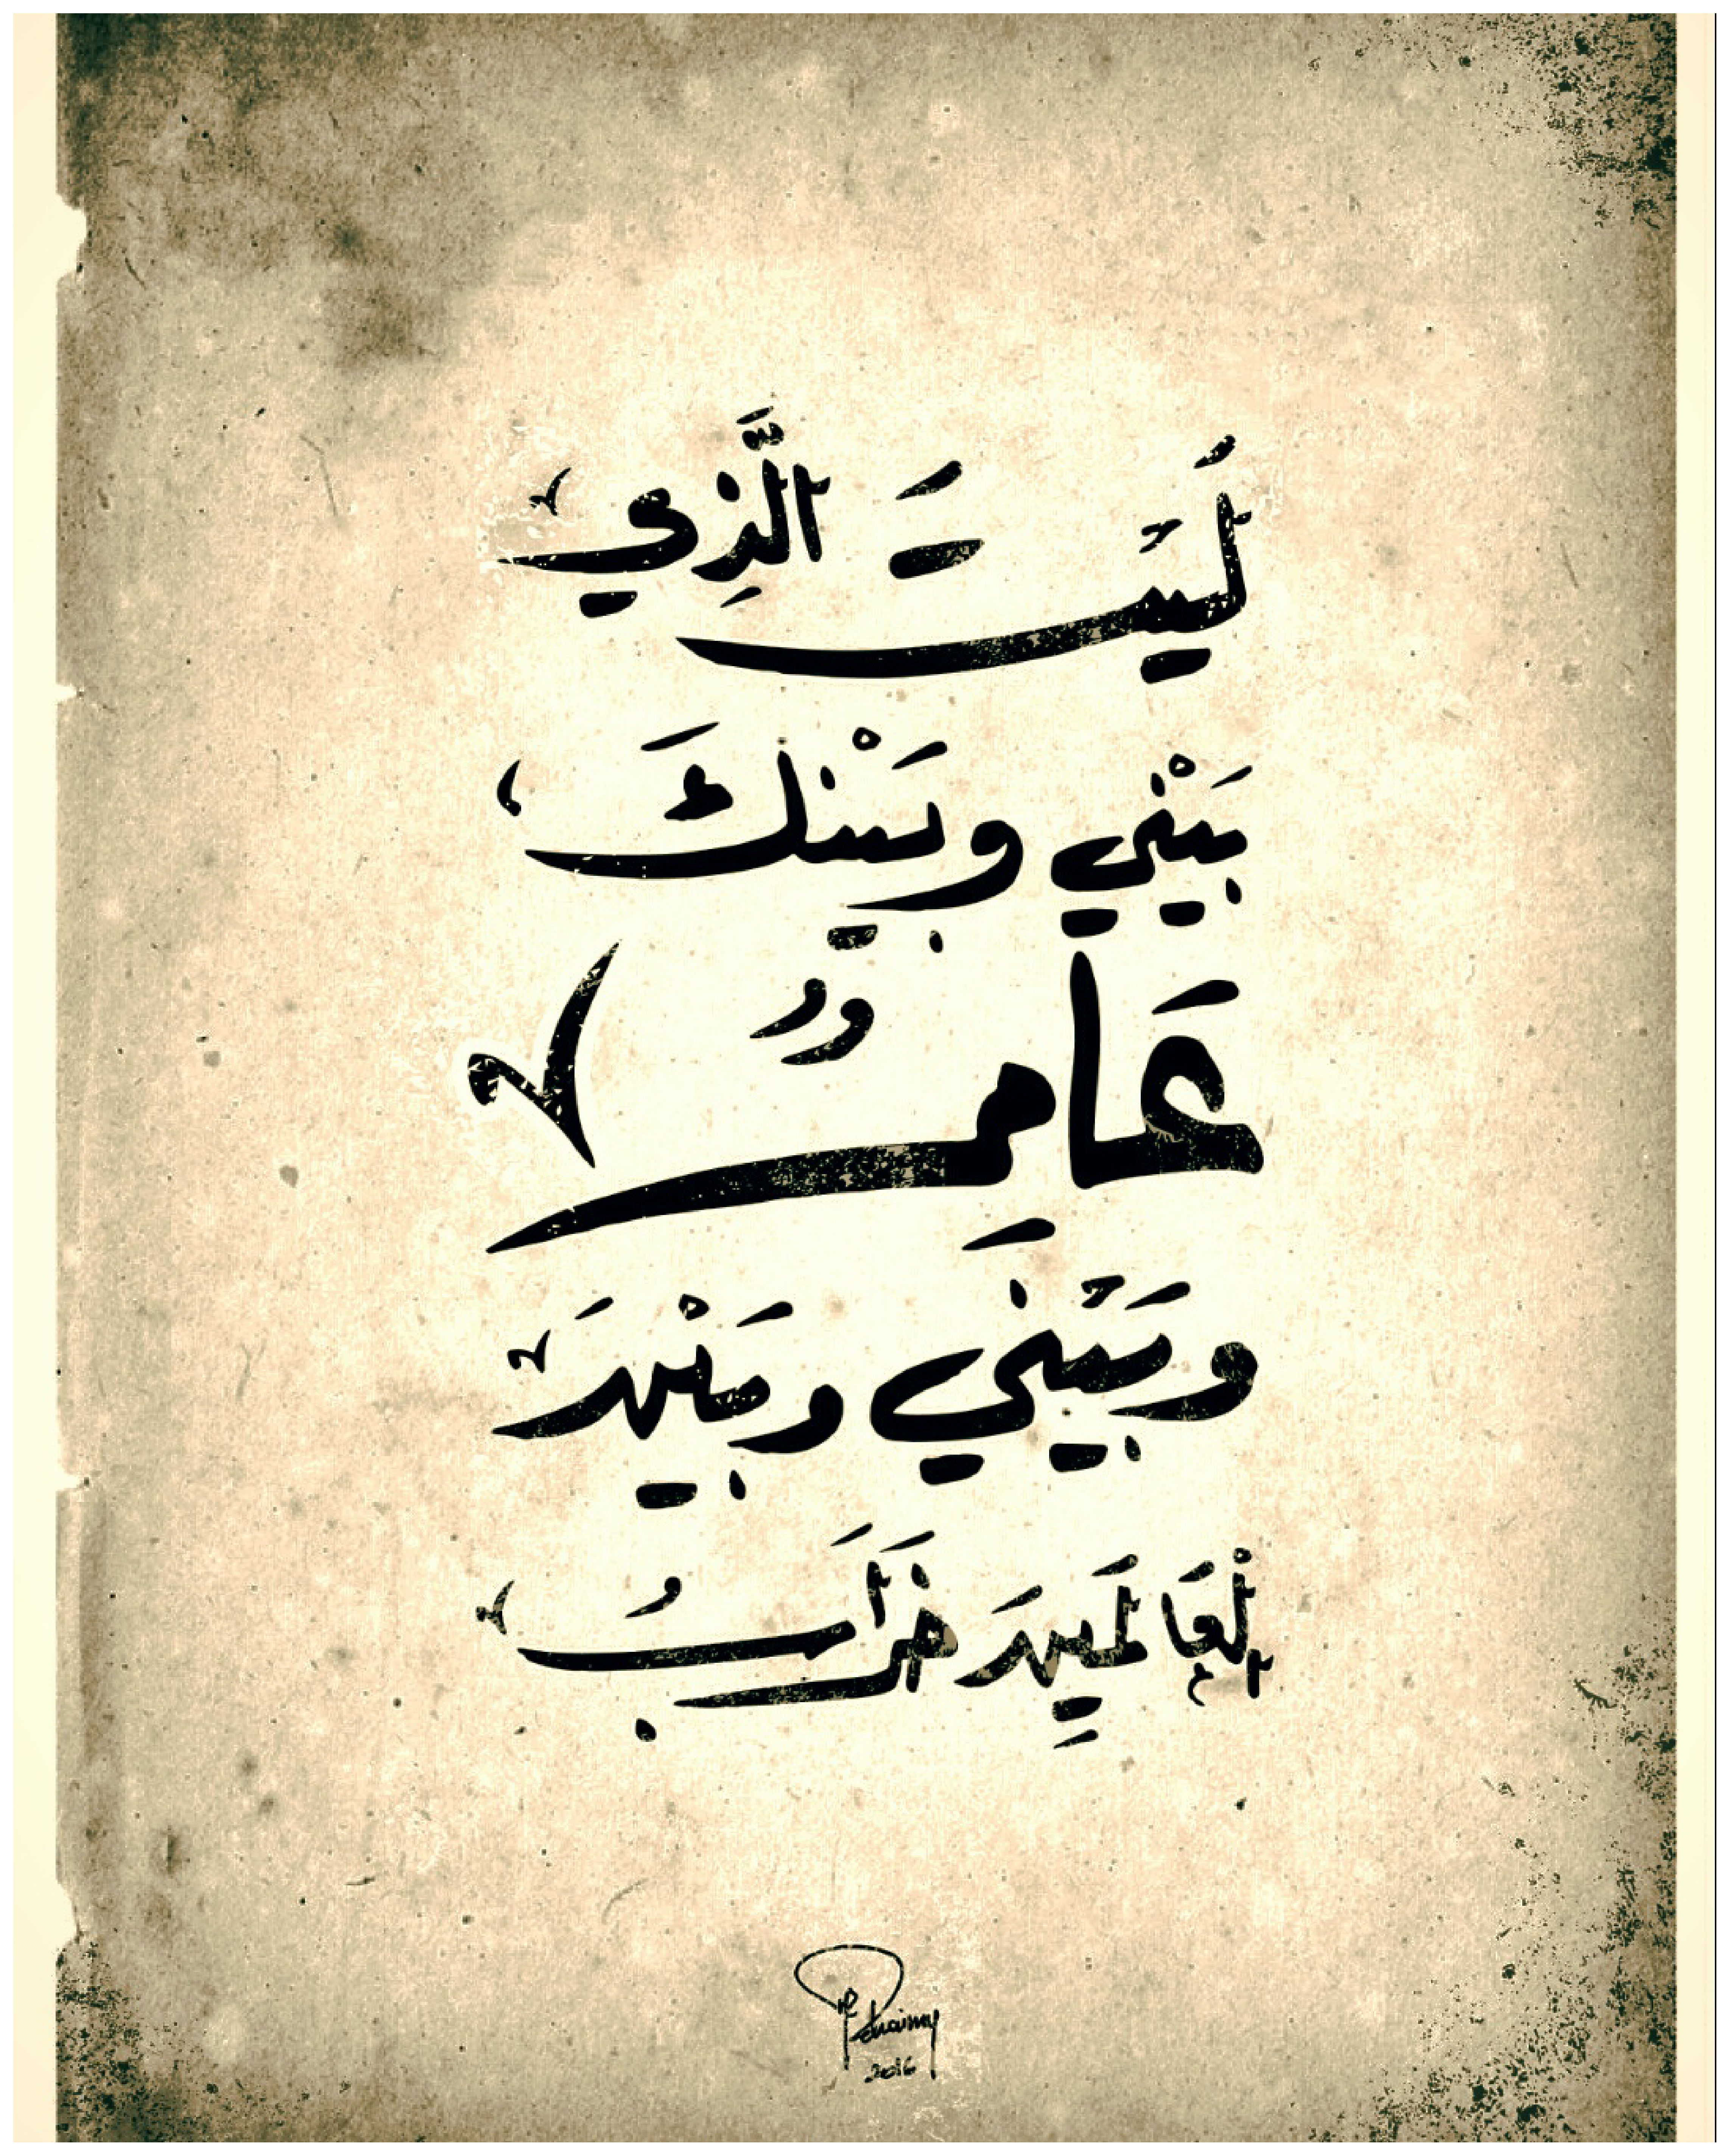 لَيْتَ الَّذِي
بَيْنِي وبَيْنكَ
عَامِرٌ
وبَيْنَي وبَيْنَ
الْعَالَمِينَ خَرَابُ
2016